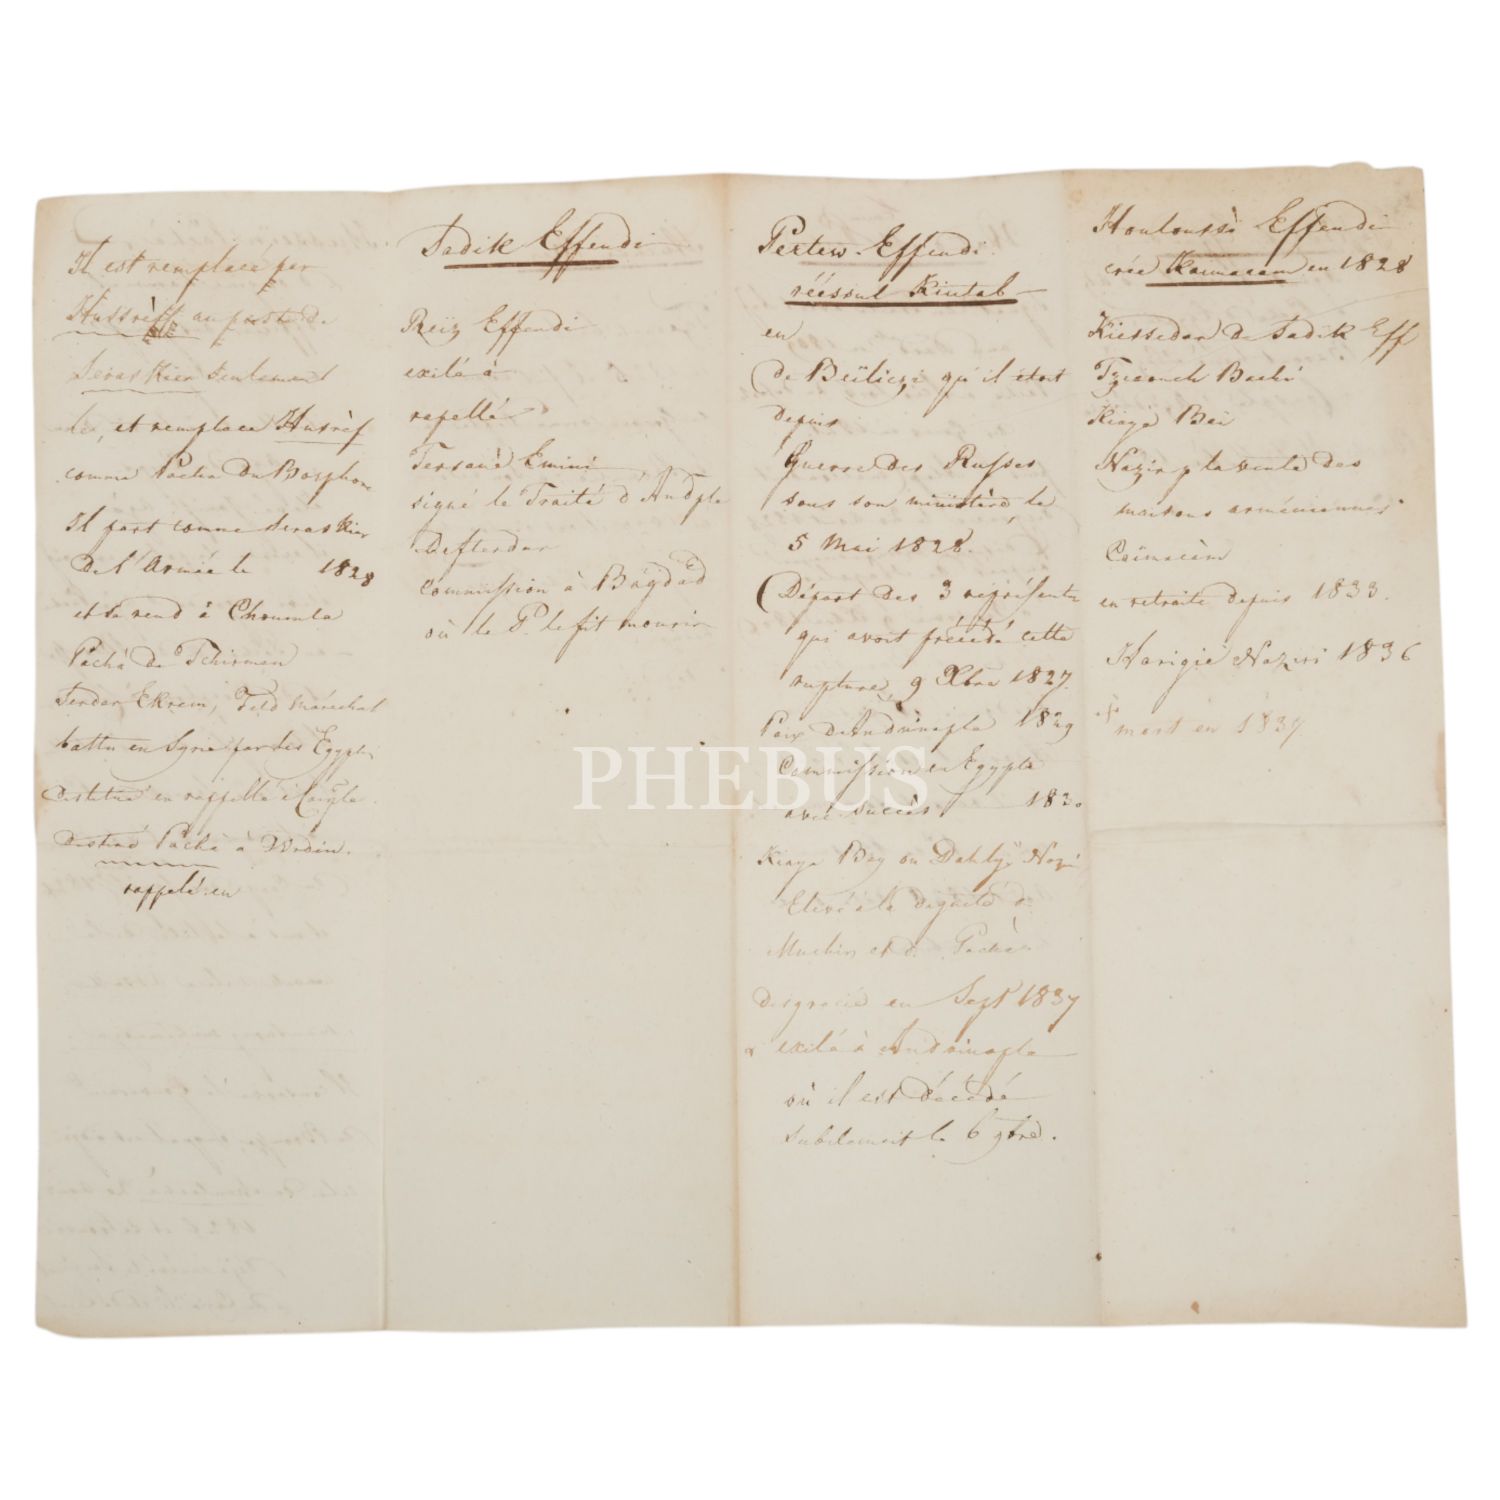 Il est remplacé par
Husrèff au poste de
Seraskier seulement
et remplace Husrèf
comme Pacha du Bosphore
Il part comme Seraskier
de l'Armée le 1828
et se rend à Choumla
Pachá de Tchirmen
Serdar Ekrem, Feld maréchal
battu en Syrie par les Egypt.
destitué en rappellé à Conple.
destiné Pacha à Widin.
rappelé en
Sadik Effendi
Reiz Effendi
exilé à
rapellé
Tersanè Emini
signé le Traité d'Andple
Defterdar
commission à Bagdad
où le P. le fit mourir
Pertew Effendi
réessul Kiutab
en
de Beiliczi qu'il étoit
depuis
Guerre des Russes
sous son ministère, le
5 Mai 1828.
(Départ des 3 représents
qui avoit précédé cette
rupture, 9 Xbre 1827.
Paix d'Andrinople 1829
Commission en Egypte
avec succès 1830
Kiaya Bey ou Dahlyè Nazi
Elevé à la dignité d.
Muchir et d. Pacha
Disgracié en Sept 1837
exilé à Andrinople
où il est décédé
subitement le 6 9bre.
Houloussi Effendi
crée Kaimacam en 1828
Kiessedar de Sadik Eff
Tziaouch Bachi
Kiaya Bei
Nazir p la vente des
maisons arméniennes
Caïmacam
en retraite depuis 1833.
Harigié Naziri 1836
mort en 1837.
PHEBUS